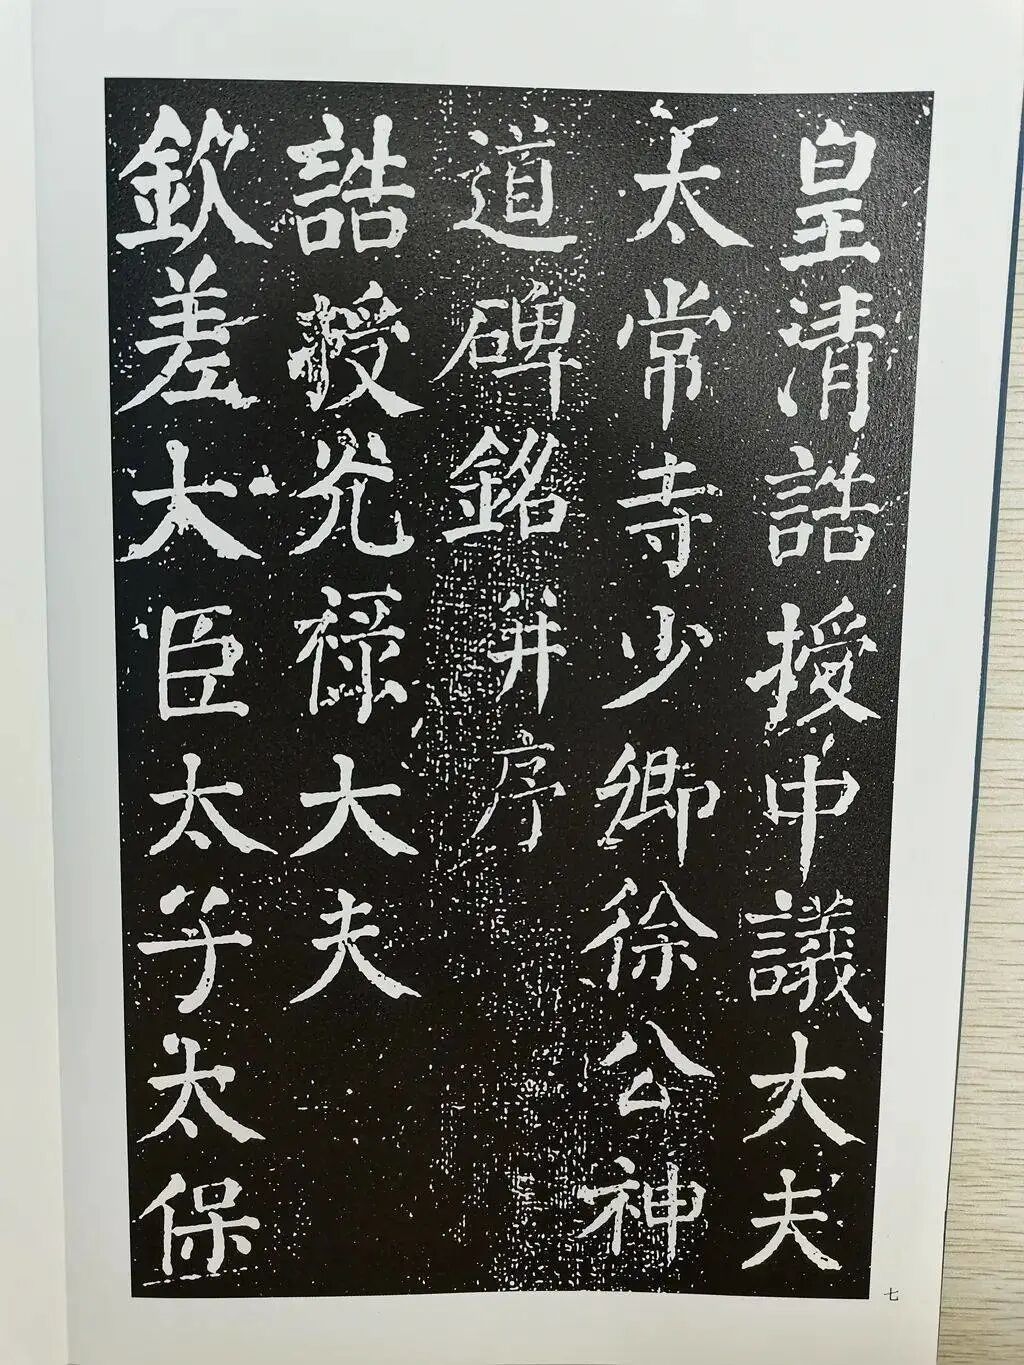 皇清誥授中議大夫
太常寺少卿徐公神
道碑銘并序
誥授光禄大夫
欽差大臣太子太保
七